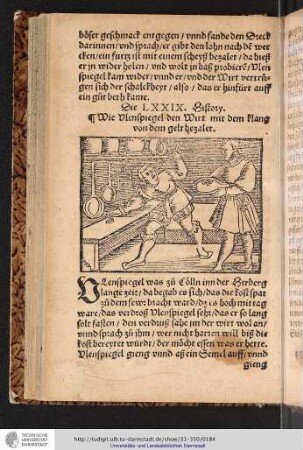 böser geschmack entgegen / vnnd fande den Dreck
darinnen / vnd sprach / er gibt den lohn nach dẽ wer
cken / ein furtz ist mit einem scheyß bezalet / da hieß
er jn wider holen / vnd wolt jn baß probierẽ / Vlen
spiegel kam wider / vnnd er / vnd der Wirt vertrů-
gen sich der schalckheyt / also / das er hinfürt auff
ein gůt beth kame.
Die LXXIX. History.
¶ Wie Vlenspiegel den Wirt mit dem klang
von dem gelt bezalet.
VLenspiegel was zů Cölln inn der Herberg
lange zeit / da begab es sich / das die kost spat
zů dem fewr bracht ward / dz es hoch mitrag
ware / das verdroß Vlenspiegel sehr / das er so lang
solt fasten / den verdruß sahe jm der wirt wol an /
vnnd sprach zů jhm / wer nicht harten will biß die
kost bereytet würdt / der möcht essen was er hette.
Vlenspiegel gieng vnnd aß ein Semel auff / vnnd
gieng
TECHNISCHE
UNIVERSITÄT
DARMSTADT
http://tudigit.ulb.tu-darmstadt.de/show/31-350/0184
Universitäts- und Landesbibliothek Darmstadt